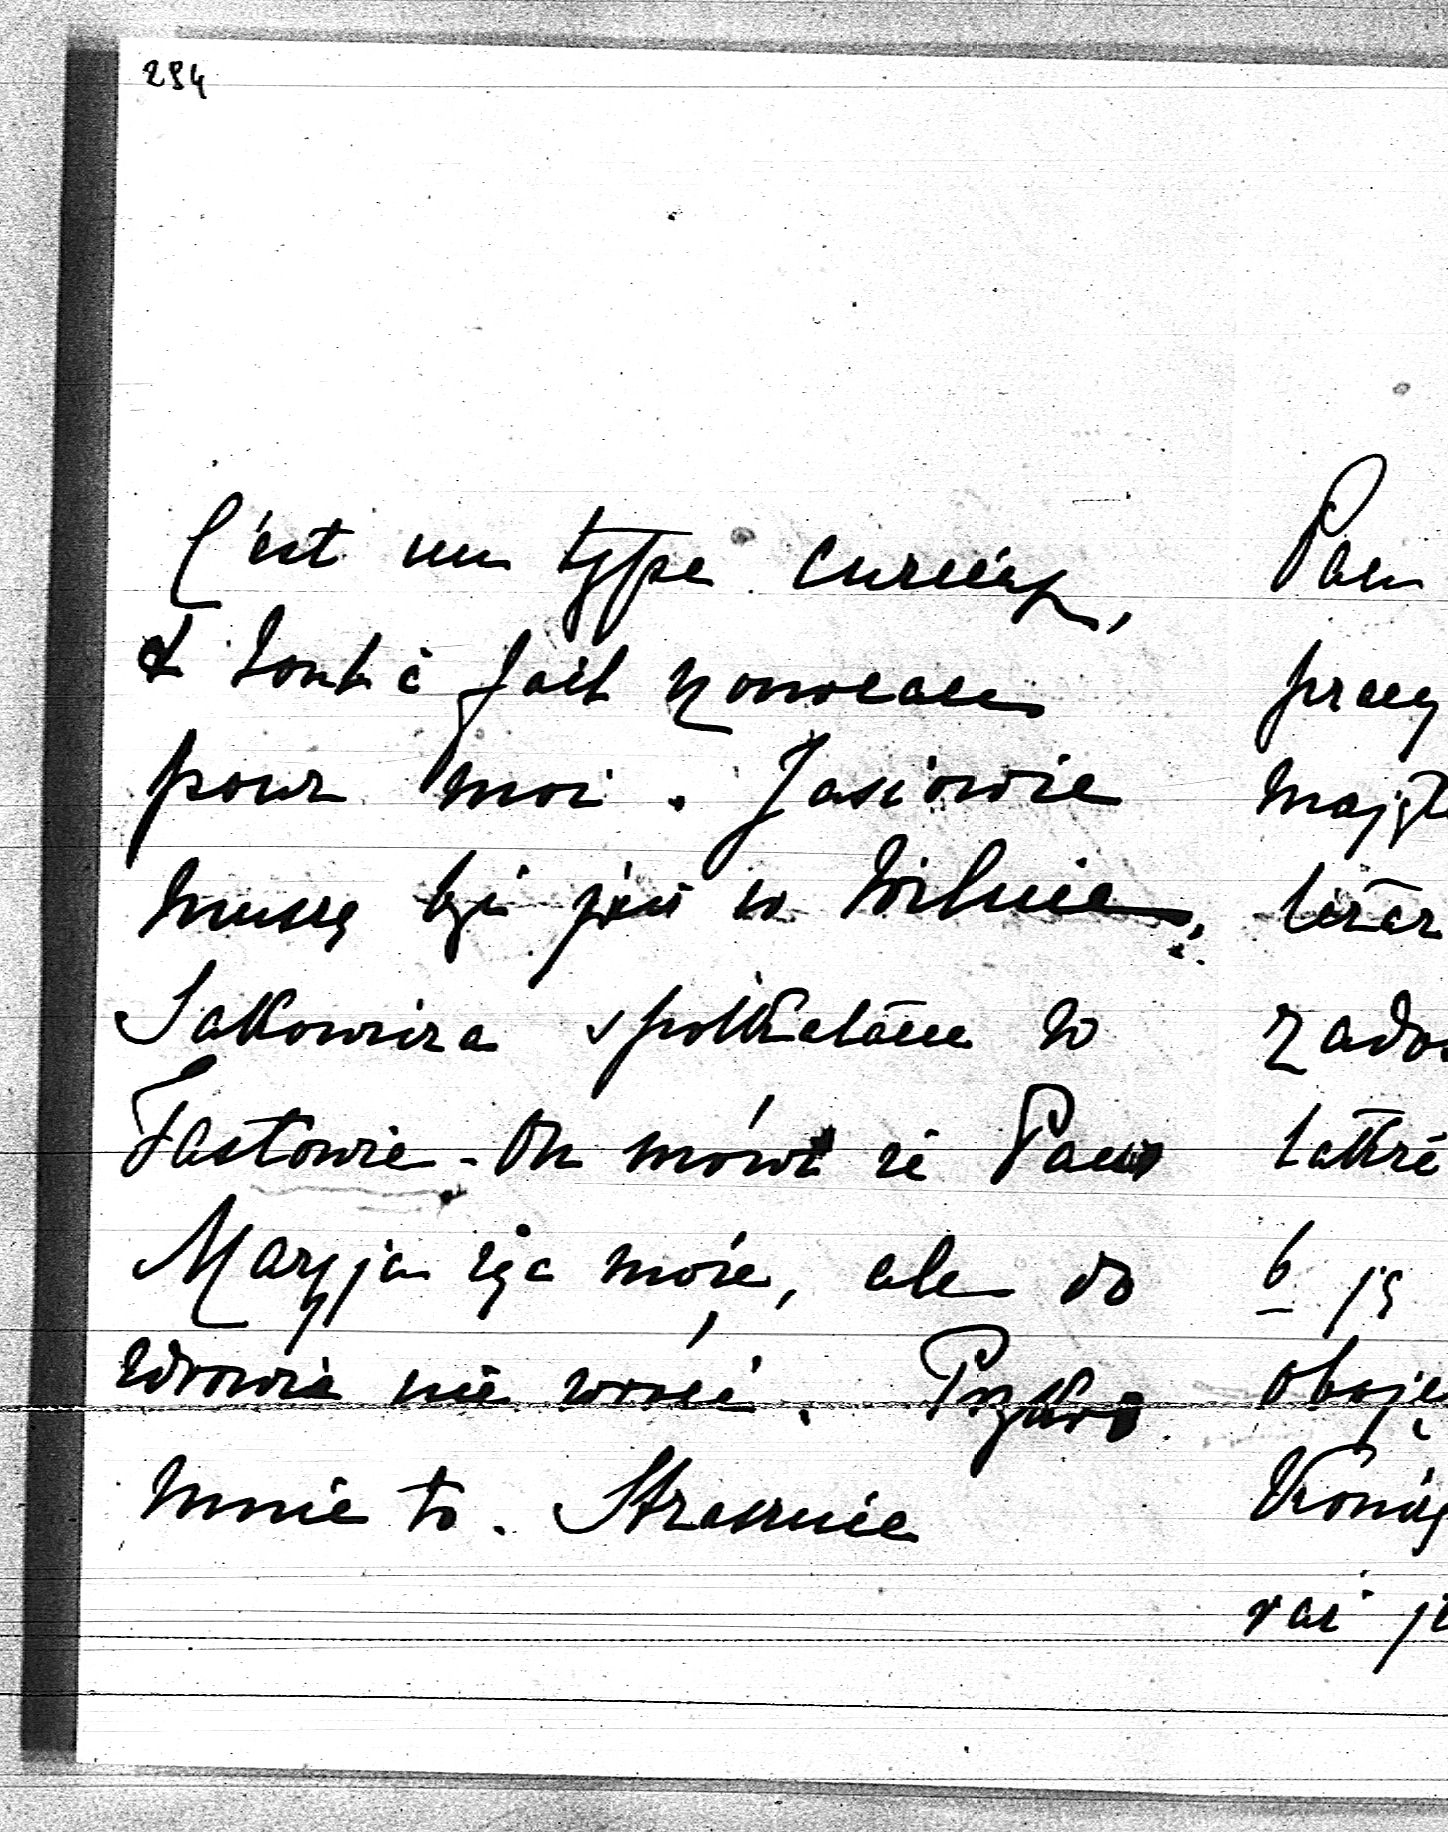 294
C'est un type curieux,
& tout à fait nouveau
pour moi. Jasiowie
muszą być już w Wilnie,
Sakowicza spotkałam w
Fastowie. On mówi że Pan
Maryja żyć może, ale do
zdrowia nie wróci. Przykro
mnie to. Strasznie
Pan
pracy
mają
teraz
zado
także
6 ją
oboję
rai